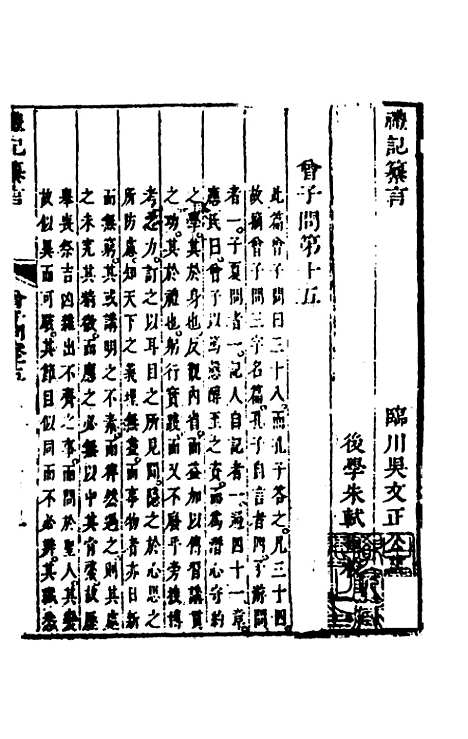 禮記纂言
臨川吳文正公
後學朱軾
曾子問第十五
此篇曾子問曰三十八而孔子答之凡三十四
故摘曾子問三字名篇孔子自言者四子游問
者一子夏問者一記人自記者一通四十一章
應氏曰曾子以篤慤醇至之資而爲潛心守約
之學其於身也反觀內省而益加以傳習講貫
之功其於禮也躬行實踐而又不廢乎旁搜博
考之力訂之以耳目之所見聞隱之於心思之
所防慮知天下之義理無盡而事物者亦日新
而無窮其或講明之不素而猝然遇之則其處
之未究其精微而應之必無以中其肯綮故歷
舉喪祭吉凶雜出不齊之事而問於聖人其變
故似異而可疑其節目似同而不必辨其纖悉
禮記纂言
曾子問卷十五